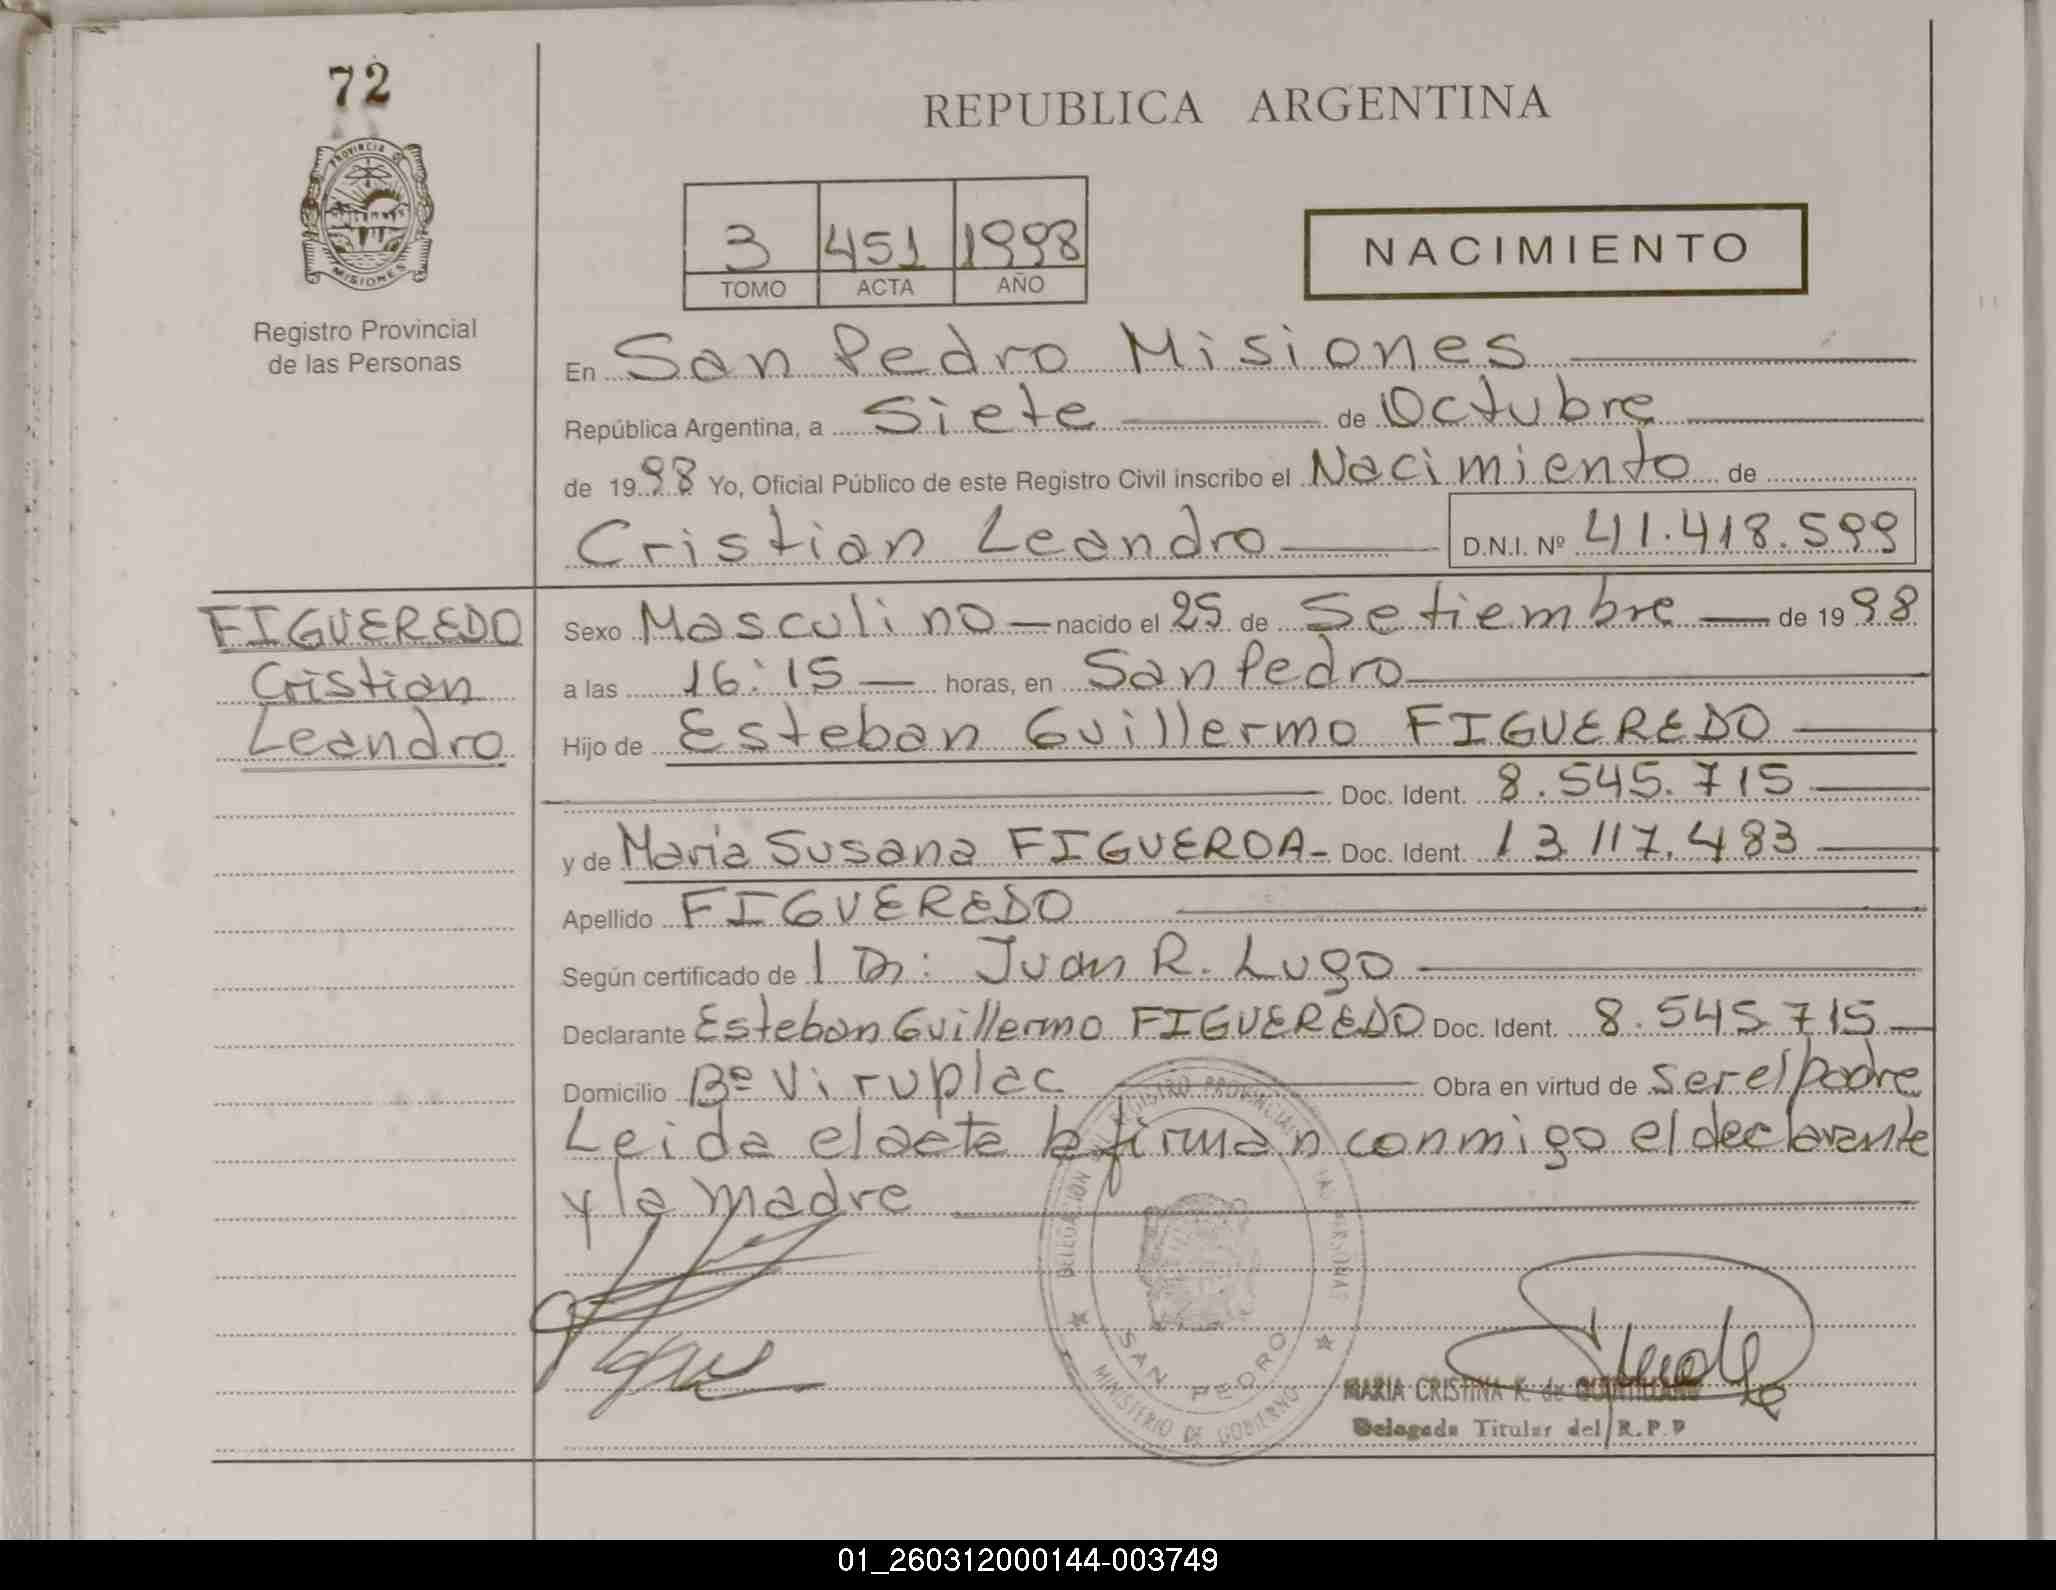 72
PROVINCIA DE
MISIONES
Registro Provincial
de las Personas
REPUBLICA ARGENTINA
3 451 1998
TOMO ACTA AÑO
NACIMIENTO
En San Pedro Misiones
República Argentina, a Siete de Octubre
de 1998 Yo, Oficial Público de este Registro Civil inscribo el Nacimiento de
Cristian Leandro D.N.I. Nº 41.418.599
FIGUEREDO
Cristian
Leandro
Sexo Masculino nacido el 25 de Setiembre de 1998
a las 16:15 horas, en San Pedro
Hijo de Esteban Guillermo FIGUEREDO
Doc. Ident. 8.545.715
y de Maria Susana FIGUEROA- Doc. Ident. 13.117.483
Apellido FIGUEREDO
Según certificado de 1 Dr: Juan R. Lugo
Declarante Esteban Guillermo FIGUEREDO Doc. Ident. 8.545.715
Domicilio Bº Viruplac Obra en virtud de ser el padre
Leida el acta la firman conmigo el declarante
y la madre
DELEGACION REGISTRO PROVINCIAL PERSONAS
SAN PEDRO
MINISTERIO DE GOBIERNO
MARIA CRISTINA K. de
Delegada Titular del R.P.P
01_260312000144-003749